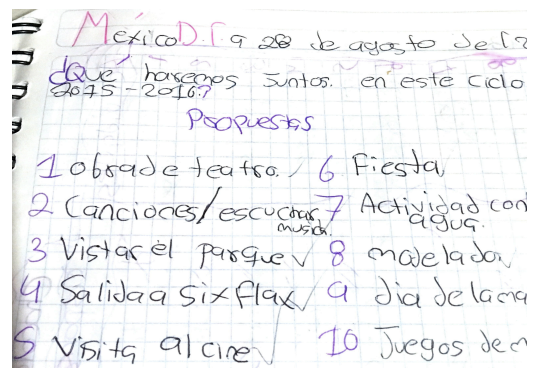 México D.F a 28 de agosto de
¿Qué haremos juntos. en este ciclo
2015-2016?
Propuestas
1 obra de teatro.
2 Canciones/escuchar
musica.
3 Vistar el parque
4 Salida a six flax
5 Visita al cine
6 Fiesta
7 Actividad con
agua.
8 modelado
9 dia de la
10 Juegos de